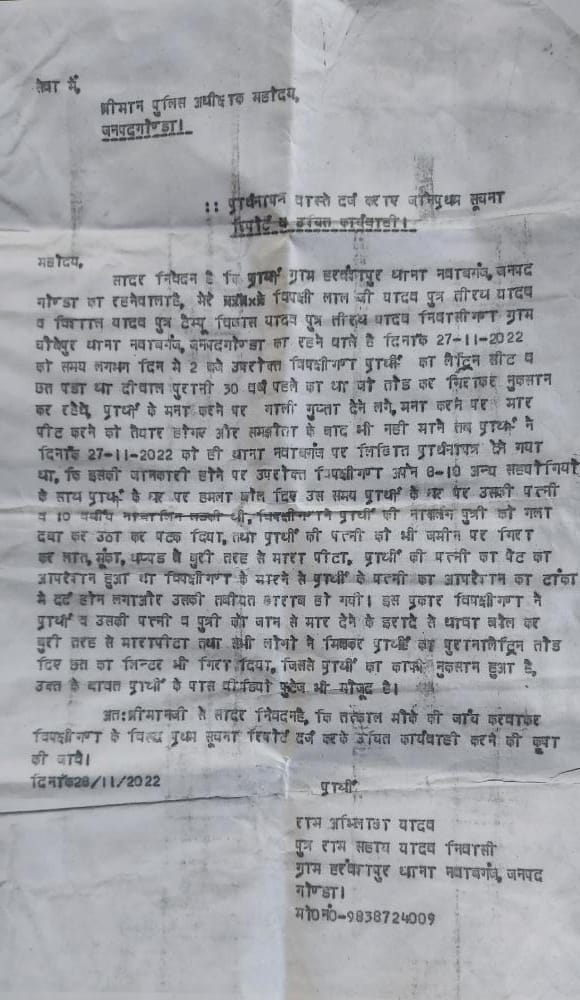 सेवा में,
श्रीमान पुलिस अधीक्षक महोदय,
जनपदगोण्डा।
:: प्रार्थनापत्र वास्ते दर्ज कराए जाने प्रथम सूचना
रिपोर्ट व उचित कार्यवाही।
महोदय,
सादर निवेदन है कि प्रार्थी ग्राम हरवंशपुर थाना नवाबगंज, जनपद
गोण्डा का रहनेवाला है, मेरे विपक्षी लाल जी यादव पुत्र तीरथ यादव
व विशाल यादव पुत्र टेम्पू विकास यादव पुत्र तीरथ यादव निवासीगण ग्राम
थाना नवाबगंज, जनपदगोण्डा का रहने वाले है दिनांक 27-11-2022
को समय लगभग दिन मे 2 बजे उपरोक्त विपक्षीगण प्रार्थी का लैट्रिन सीट व
छत पडा था दीवाल पुरानी 30 वर्ष पहले का था जो तोड कर गिराकर नुकसान
कर रहेथे, प्रार्थी के मना करने पर गाली गुप्ता देने लगे, मना करने पर मार
पीट करने को तैयार होगए और समझौता के बाद भी नही माने तब प्रार्थी ने
दिनांक 27-11-2022 को ही थाना नवाबगंज पर लिखित प्रार्थनापत्र देने गया
था, कि इसकी जानकारी होने पर उपरोक्त विपक्षीगण अपने 8-10 अन्य सहयोगियों
के साथ प्रार्थी के घर पर हमला बोल दिए उस समय प्रार्थी के घर पर उसकी पत्नी
व 10 वर्षीय नाबालिग लडकी थी, विपक्षीगण ने प्रार्थी की नाबालिग पुत्री को गला
दबा कर उठा कर पटक दिया, तथा प्रार्थी की पत्नी को भी जमीन पर गिरा
कर लात, मुंका, थप्पड से बुरी तरह से मारा पीटा, प्रार्थी की पत्नी का पेट का
आपरेशन हुआ था विपक्षीगण के मारने से प्रार्थी के पत्नी का आपरेशन का टांका
मे दर्द होने लगाऔर उसकी तबीयत खराब हो गयी। इस प्रकार विपक्षीगण ने
प्रार्थी व उसकी पत्नी व पुत्री को जान से मार देने के इरादे से धावा बोल कर
बुरी तरह से मारापीटा तथा सभी लोगो ने मिलकर प्रार्थी का पुरानालैट्रिन तोड
दिए छत का लिन्टर भी गिरा दिया, जिससे प्रार्थी का काफी नुकसान हुआ है,
उक्त के बावत प्रार्थी के पास वीडियो फुटेज भी मौजूद है।
अत:श्रीमानजी से सादर निवेदनहै, कि तत्काल मौके की जांच करवाकर
विपक्षीगण के विरुध प्रथम सूचना रिपोर्ट दर्ज करके उचित कार्यवाही करने की कृपा
की जावे।
दिनांक28/11/2022
प्रार्थी
राम अभिलाख यादव
पुत्र राम सहाय यादव निवासी
ग्राम हरवंशपुर थाना नवाबगंज, जनपद
गोण्डा।
मो0नं0-9838724009